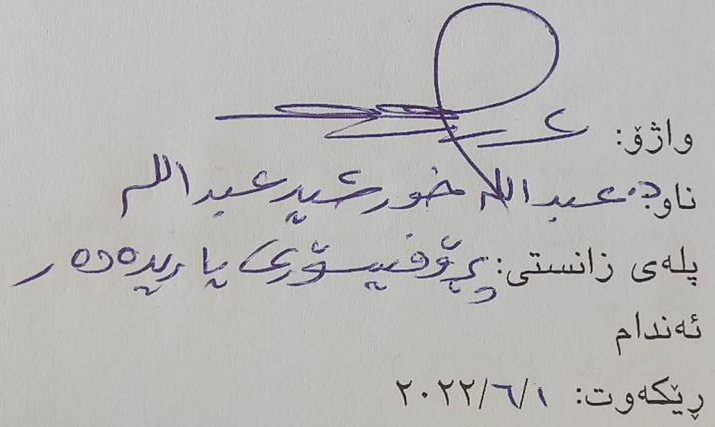 واژۆ:
ناو: د. عبدالله خورشید عبدالله
پلەی زانستی: پرۆفیسۆری یاریدەدەر
ئەندام
ڕێکەوت: ٢٠٢٢/٦/١